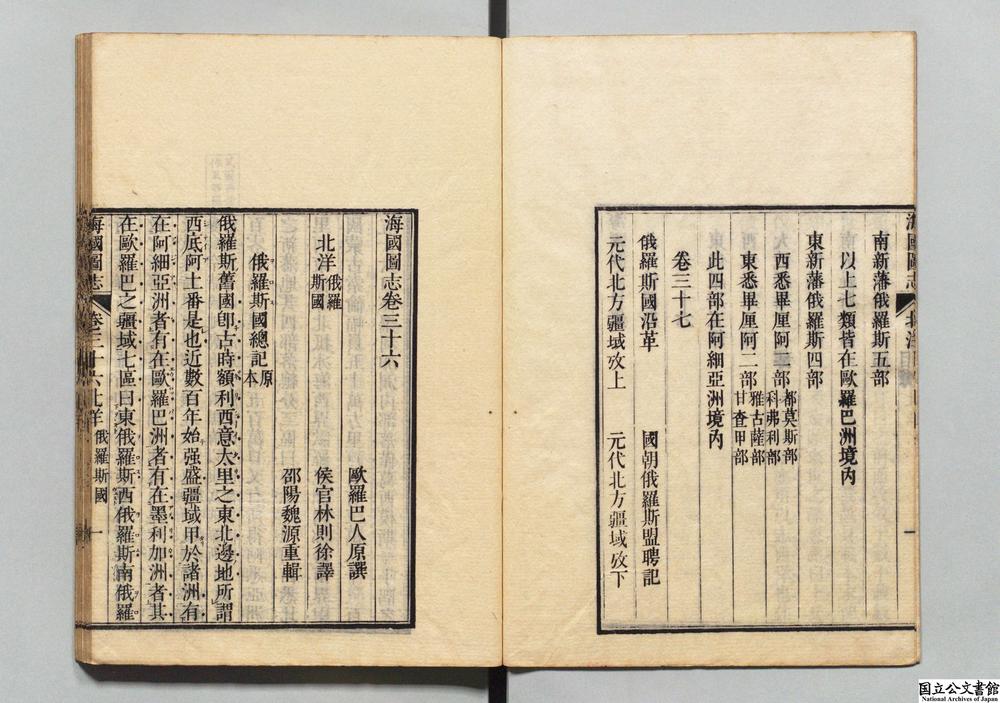 海國圖志 北洋目錄 一
南新藩俄羅斯五部
以上七類皆在歐羅巴洲境內
東新藩俄羅斯四部
西悉畢厘阿二部 都莫斯部 科弗利部
東悉畢厘阿二部 雅古薩部 甘查甲部
此四部在阿細亞洲境內
卷三十七
俄羅斯國沿革 國朝俄羅斯盟聘記
元代北方疆域攷上 元代北方疆域攷下
海國圖志卷三十六
歐羅巴人原譔
北洋 俄羅斯國 侯官林則徐譯
邵陽魏源重輯
俄羅斯國總記 原本
俄羅斯舊國卽古時額利西意大里之東北邊地所謂
西底阿土番是也近數百年始强盛疆域甲於諸洲有
在阿細亞洲者有在歐羅巴洲者有在墨利加洲者其
在歐羅巴之疆域七區曰東俄羅斯西俄羅斯南俄羅
海國圖志 卷三十六 北洋 俄羅斯國 一
国立公文書館
National Archives of Japan